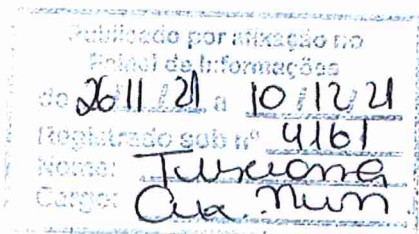 Publicado por afixação no
Painel de Informações
de 26/11/21 a 10/12/21
Registrado sob nº 4161
Nome:
Cargo: